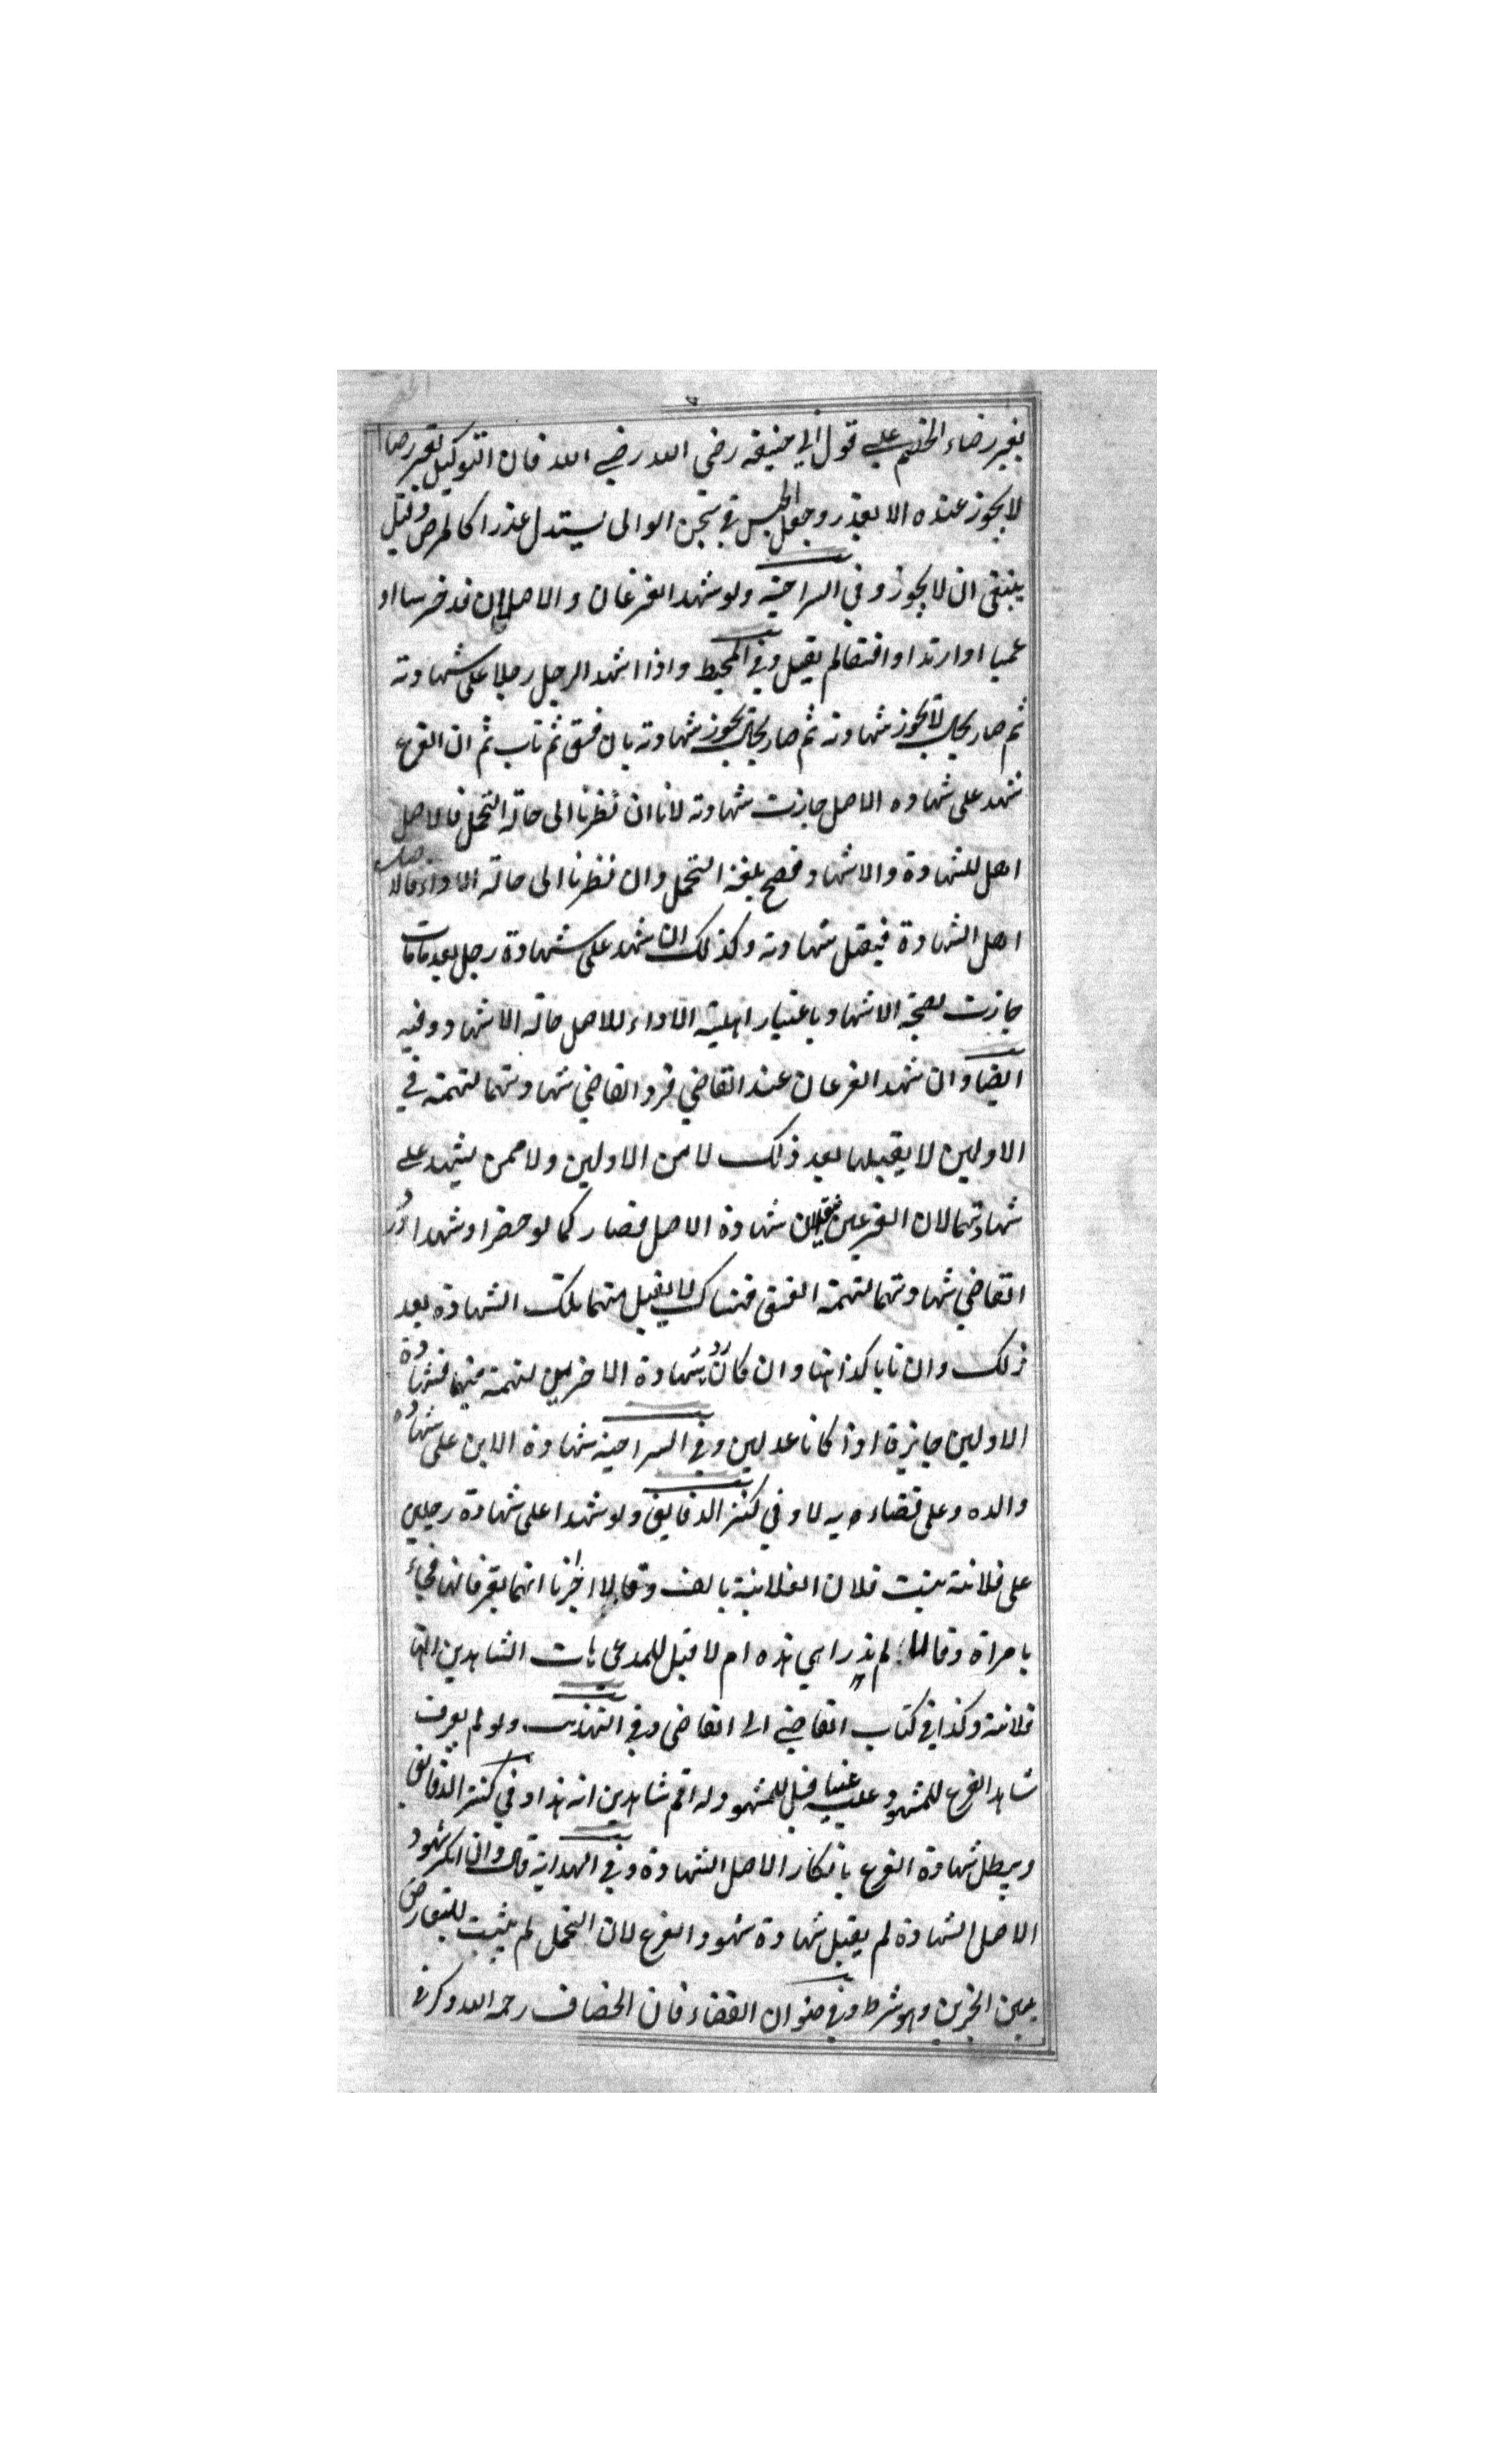 بغير رضاء الخصم على قول ابي حنيفة رضى الله رضي الله فان التوكيل بغير رضا
لا يجوز عنده الا بعذر وجعل الحبس في سجن الوالى يستدل عذرا كالمرض وقيل
ينبغى ان لا يجوز وفي السراجية ولو شهد الفرعان والاصلان قد خرسا او
عميا او ارتدا او افسقا لم يقبل وفي المحيط واذا اشهد الرجل رجلا على شهادته
ثم صار بحال لا تجوز شهادته ثم صار بحال تجوز شهادته بان فسق ثم تاب ثم ان الفرع
شهد على شهاده الاصل جازت شهادته لانا ان نظرنا الى حالة التحمل فالاصل
اهل للشهادة والاشهاد فصح بلغه التحمل وان نظرنا الى حالة الاداء فالاصل
اهل الشهادة فيقبل شهادته وكذلك ان شهد على شهادة رجل بعد ما مات
جازت لصحة الاشهاد باعتبار اهلية الاداء للاصل حالة الاشهاد وفيه
ايضا وان شهد الفرعان عند القاضي فرد القاضي شهادتهما لتهمة في
الاولين لا يقبلها بعد ذلك لا من الاولين ولا ممن يشهد على
شهادتهما لان الفرعين ينقلان شهادة الاصل فصار كما لو حضرا وشهدا ورد
القاضي شهادتهما لتهمة الفسق فهناك لا يقبل منهما تلك الشهادة بعد
ذلك وان تابا كذا هنا وان كان رد شهادة الاخرين لتهمة فيهما فشهادة
الاولين جايزة اذا كانا عدلين وفي السراجية شهادة الابن على شهادة
والده وعلى قضاء ابيه لا وفي كنز الدقايق ولو شهدا على شهادة رجلين
على فلانة بنت فلان الفلانية بالف وقالا اخبرنا انهما يعرفانها فجاء
بامراة وقالا لم ندر اهي هذه ام لا قيل للمدعى هات الشاهدين انها
فلانة وكذا في كتاب القاضي الى القاضى وفي التهذيب ولو لم يعرف
شاهد الفرع للمشهود عليه عينا قيل للمشهود له اقم شاهدين انه هذا وفي كنز الدقايق
ويبطل شهادة الفرع بانكار الاصل الشهادة وفي الهداية قال وان انكر شهود
الاصل الشهادة لم يقبل شهادة شهود الفرع لان التحمل لم يثبت للتعارض
بين الخبرين وهو شرط وفي صنوان القضاء قال الخصاف رحمه الله وذكر في